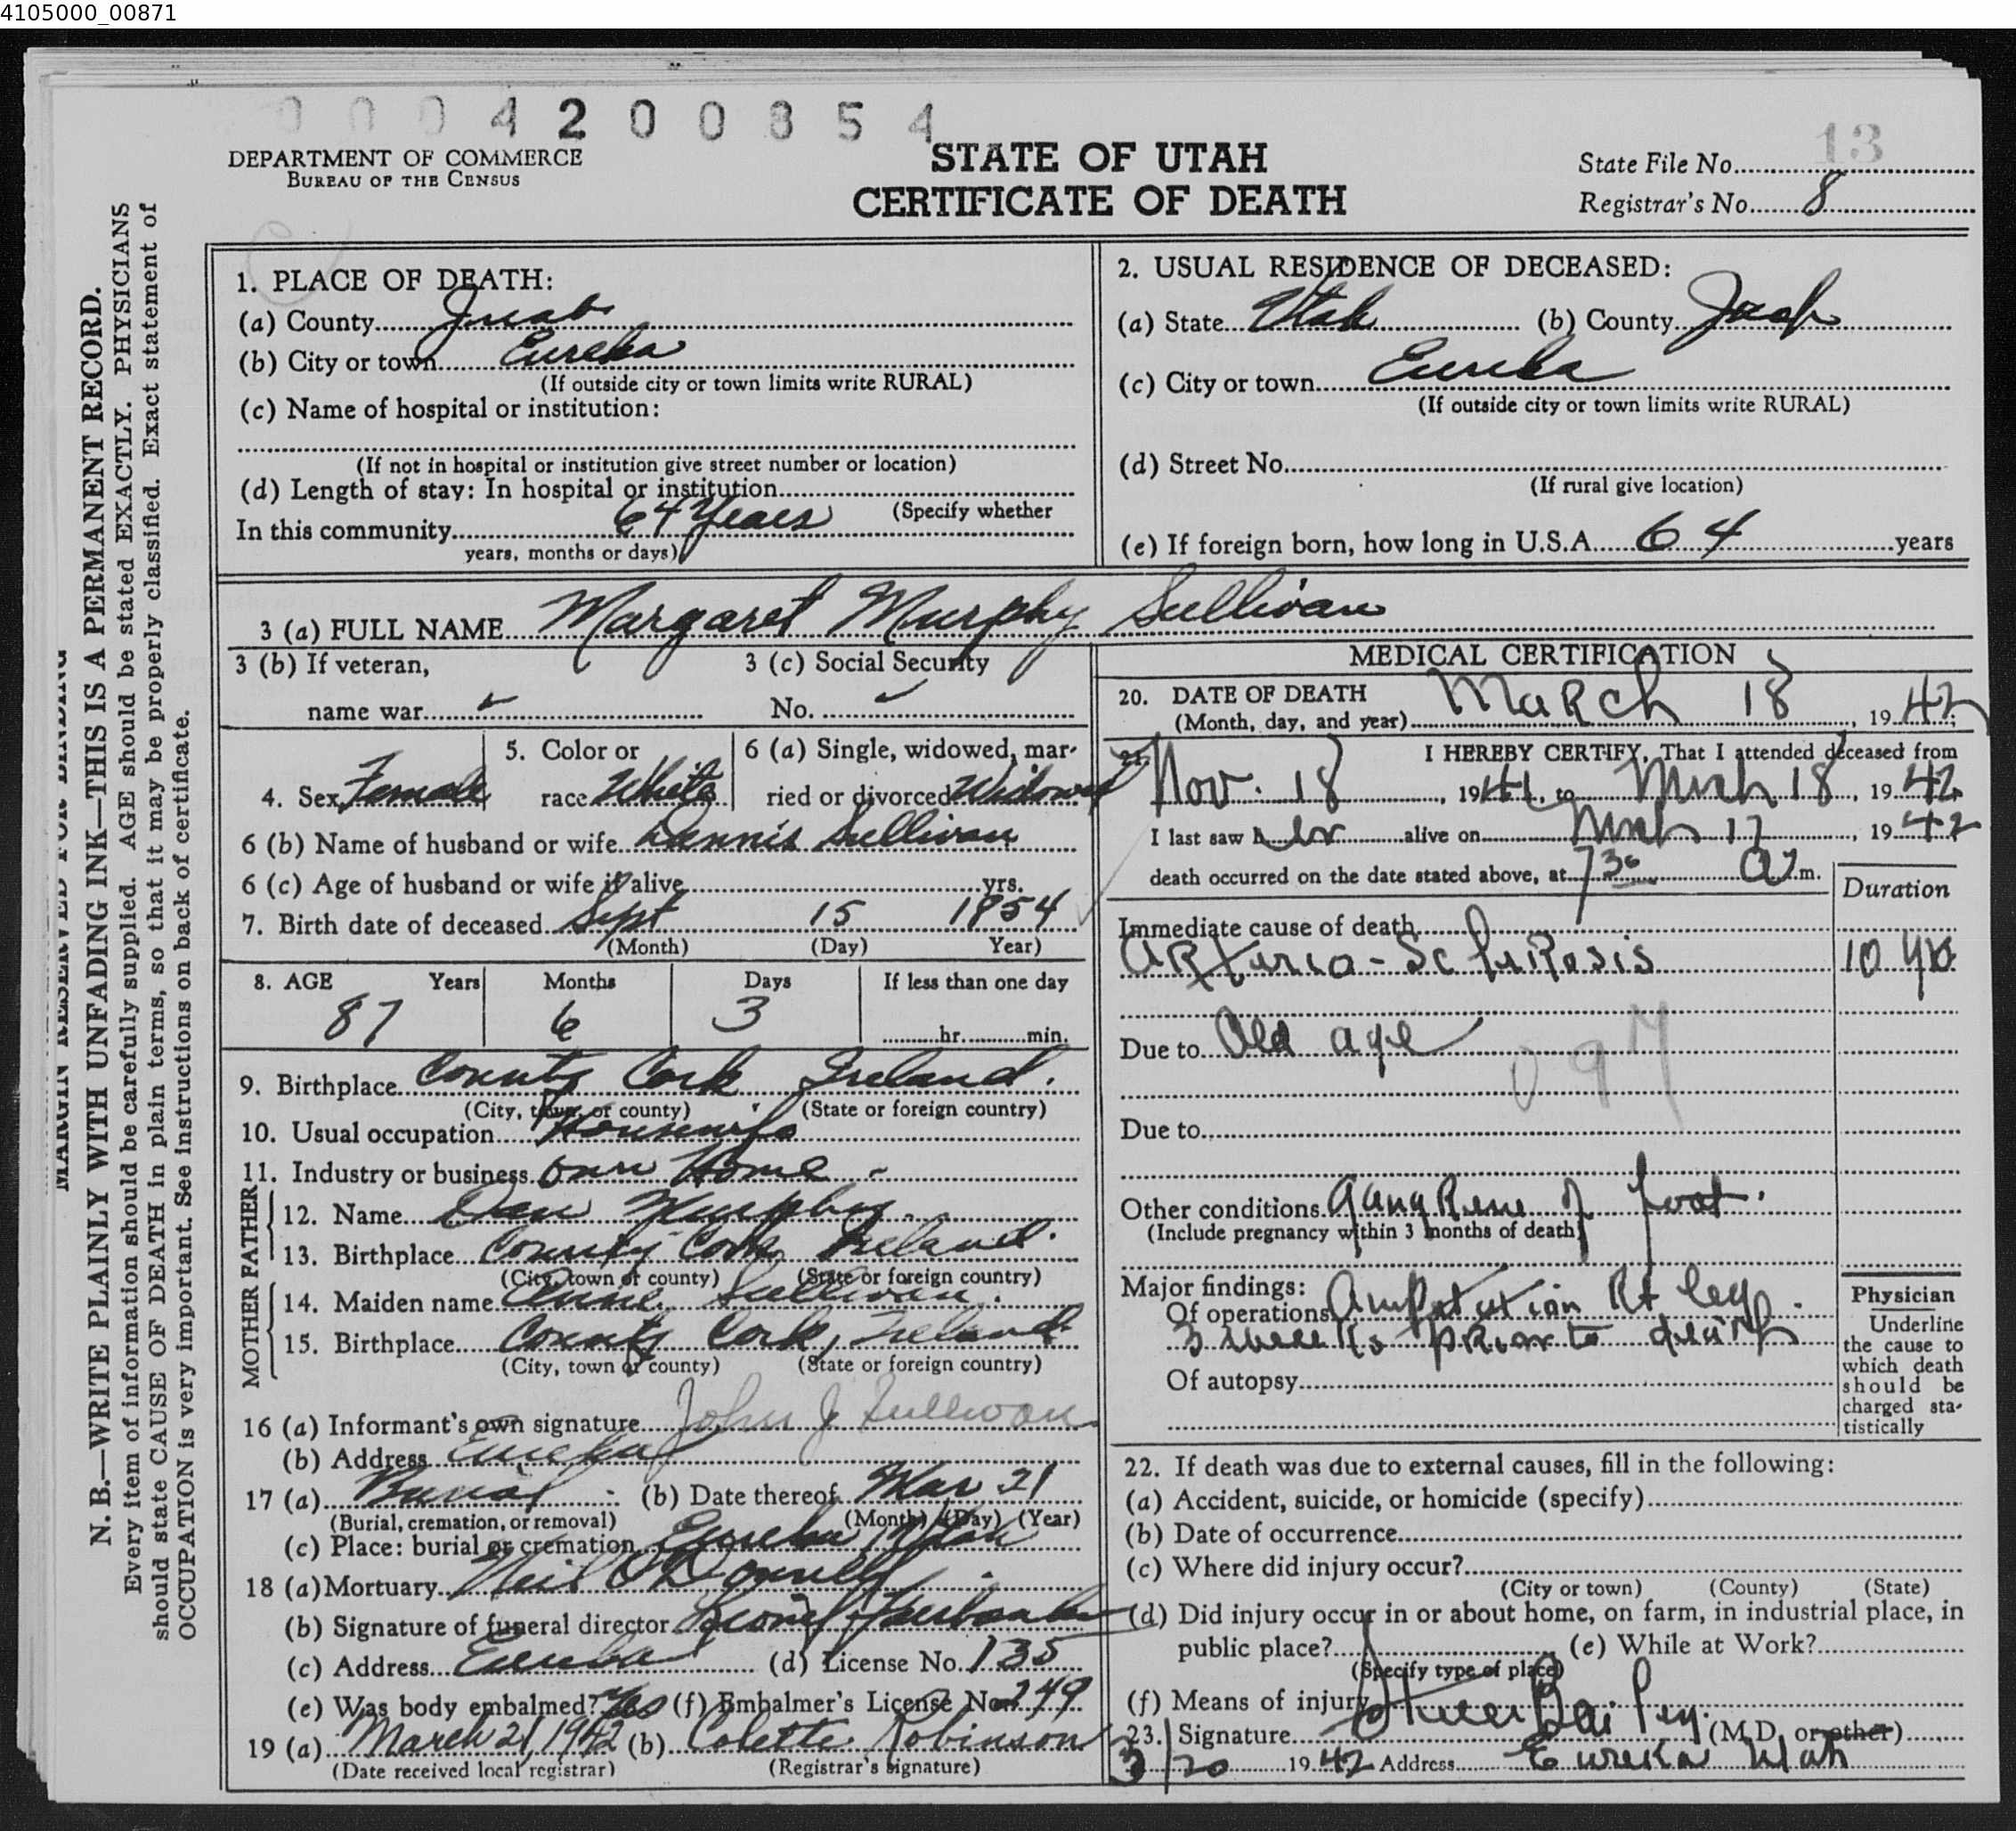 4105000_00871
0 0 0 4 2 0 0 8 5 4
DEPARTMENT OF COMMERCE
BUREAU OF THE CENSUS
STATE OF UTAH
CERTIFICATE OF DEATH
State File No. 13
Registrar's No. 8
MARGIN RESERVED FOR BINDING
N. B.—WRITE PLAINLY WITH UNFADING INK—THIS IS A PERMANENT RECORD.
Every item of information should be carefully supplied. AGE should be stated EXACTLY. PHYSICIANS
should state CAUSE OF DEATH in plain terms, so that it may be properly classified. Exact statement of
OCCUPATION is very important. See instructions on back of certificate.
1. PLACE OF DEATH:
(a) County Juab
(b) City or town Eureka
(If outside city or town limits write RURAL)
(c) Name of hospital or institution:
(If not in hospital or institution give street number or location)
(d) Length of stay: In hospital or institution
(Specify whether
In this community 64 Years
years, months or days)
2. USUAL RESIDENCE OF DECEASED:
(a) State Utah (b) County Juab
(c) City or town Eureka
(If outside city or town limits write RURAL)
(d) Street No.
(If rural give location)
(e) If foreign born, how long in U.S.A. 64 years
3 (a) FULL NAME Margaret Murphy Sullivan
3 (b) If veteran,
name war
3 (c) Social Security
No.
4. Sex Female
5. Color or
race White
6 (a) Single, widowed, mar-
ried or divorced Widowed
6 (b) Name of husband or wife Dennis Sullivan
6 (c) Age of husband or wife if alive yrs.
7. Birth date of deceased Sept 15 1854
(Month) (Day) Year)
8. AGE Years Months Days If less than one day
87 6 3 hr. min.
9. Birthplace County Cork Ireland.
(City, town, or county) (State or foreign country)
10. Usual occupation Housewife
11. Industry or business Own Home
FATHER
12. Name Dan Murphy
13. Birthplace County Cork Ireland.
(City, town or county) (State or foreign country)
MOTHER
14. Maiden name Anne Sullivan.
15. Birthplace County Cork, Ireland
(City, town or county) (State or foreign country)
16 (a) Informant's own signature John J Sullivan
(b) Address Eureka
17 (a) Burial (b) Date thereof Mar 21
(Burial, cremation, or removal) (Month) (Day) (Year)
(c) Place: burial or cremation Eureka, Utah
18 (a) Mortuary Neil O'Donnell
(b) Signature of funeral director Lionel Fairbanks
(c) Address Eureka (d) License No. 135
(e) Was body embalmed? Yes (f) Embalmer's License No. 249
19 (a) March 21, 1942 (b) Colette Robinson
(Date received local registrar) (Registrar's signature)
MEDICAL CERTIFICATION
20. DATE OF DEATH
(Month, day, and year) March 18, 1942
21. I HEREBY CERTIFY, That I attended deceased from
Nov. 18, 1941, to March 18, 1942
I last saw her alive on March 17, 1942
death occurred on the date stated above, at 7 30 a. m.
Duration
Immediate cause of death
Arterio-Sclerosis 10 yrs.
Due to Old age
097
Due to
Other conditions Gangrene of foot.
(Include pregnancy within 3 months of death)
Major findings:
Of operations Amputation Rt leg.
3 weeks prior to death
Of autopsy
Physician
Underline
the cause to
which death
should be
charged sta-
tistically
22. If death was due to external causes, fill in the following:
(a) Accident, suicide, or homicide (specify)
(b) Date of occurrence
(c) Where did injury occur?
(City or town) (County) (State)
(d) Did injury occur in or about home, on farm, in industrial place, in
public place? (e) While at Work?
(Specify type of place)
(f) Means of injury
23. Signature Steele Bailey. (M.D. or other)
3/20 1942 Address Eureka Utah